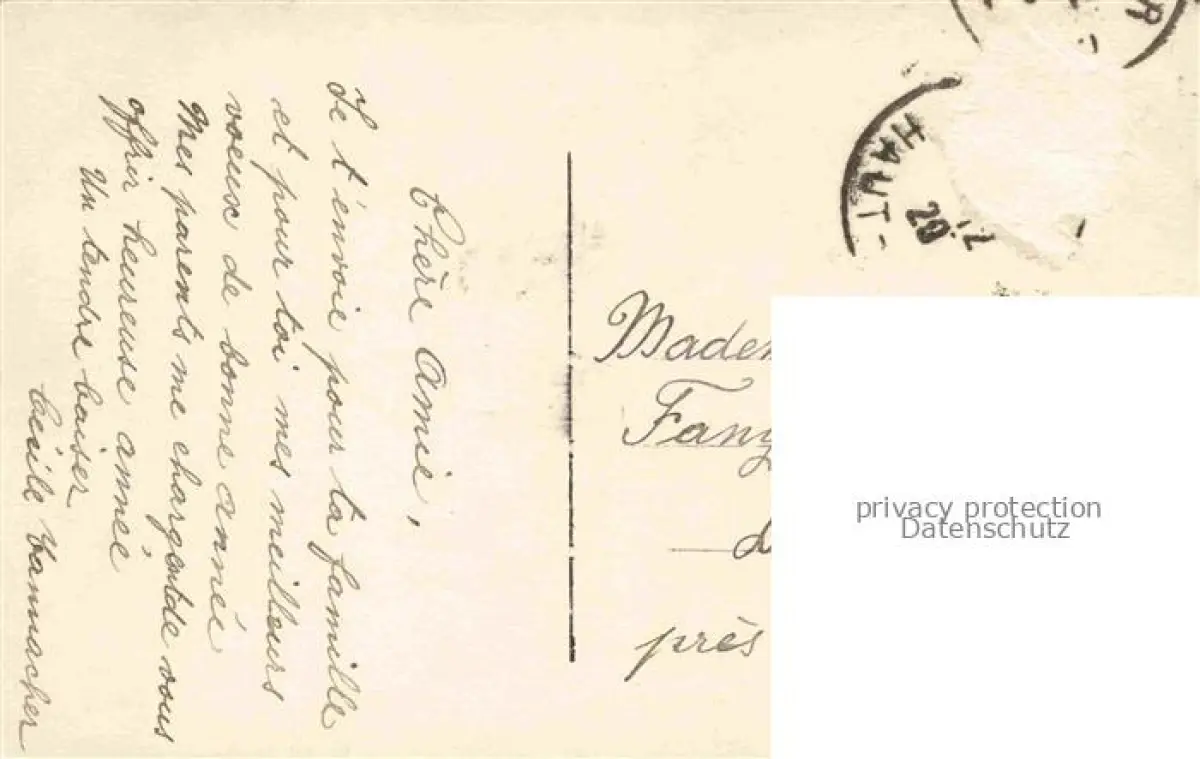 Chère Amie,
Je t'envoie pour ta famille
et pour toi mes meilleurs
voeux de bonne année
Mes parents me chargent de vous
offrir heureuse année
Un tendre baiser
Cécile Vannacher
HAUT-
20
Madem
Fany
près
privacy protection
Datenschutz